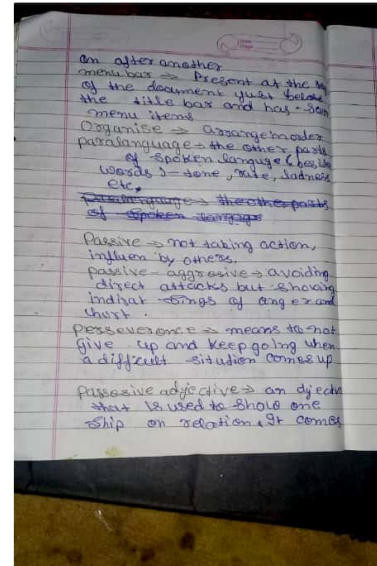 on after another
menu bar → Present at the top
of the document just below
the title bar and has
menu items
Organise → arrange in order
paralanguage → the other parts
of spoken languge (beside
words) – tone, rate, ladness
etc.
Paralanguage → the other parts
of spoken langage
Passive → not taking action,
influen by others.
passive – aggrosive → avoiding
direct attacks but showing
indirat sings of anger and
hurt.
perseverence → means to not
give up and keep going when
a difficult sitution comes up
Passosive adjective → an djective
that is used to show one
ship on relation. It comes